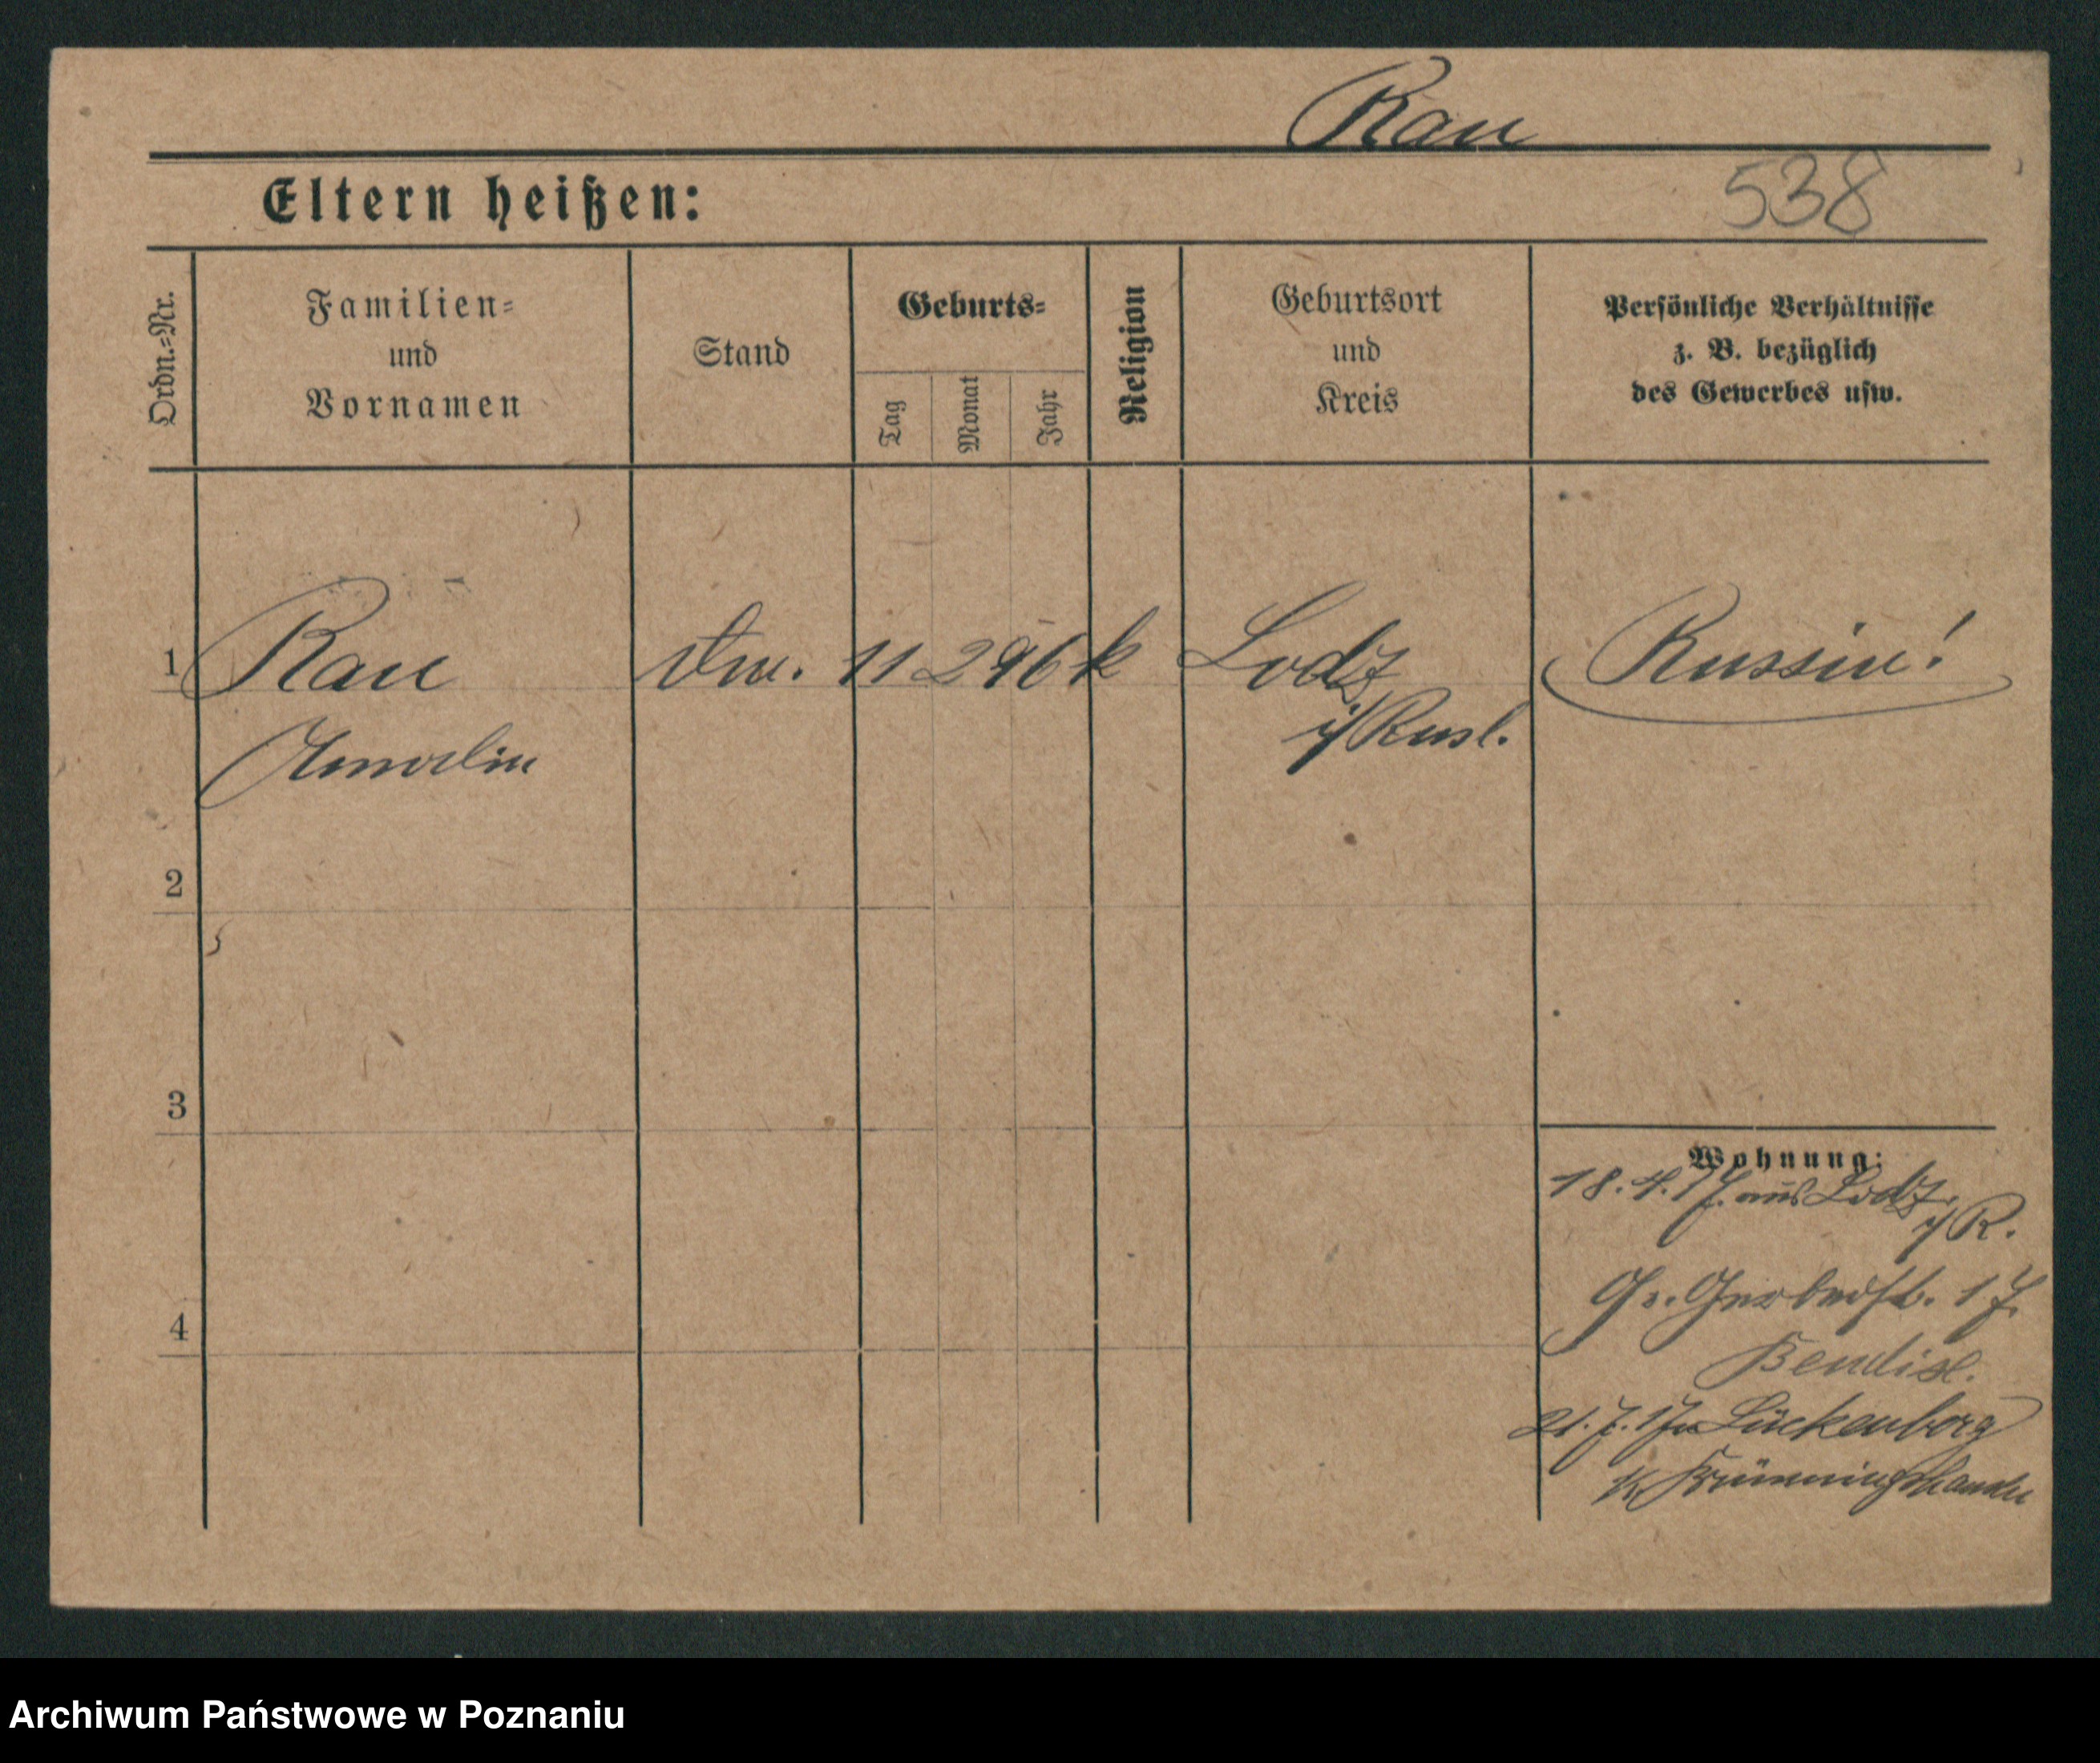 Rau
Eltern heißen:
538
Ordn.-Nr.
Familien-
und
Vornamen
Stand
Geburts-
Tag
Monat
Jahr
Religion
Geburtsort
und
Kreis
Persönliche Verhältnisse
z. B. bezüglich
des Gewerbes usw.
1
Rau
11 2 96 k Lodz
i/Rusl.
Russin!
2
3
4
Wohnung:
18.4.17. aus Lodz
i/R.
Gr. Gerberstr. 17.
21.7.17 n Lückenborg
Archiwum Państwowe w Poznaniu